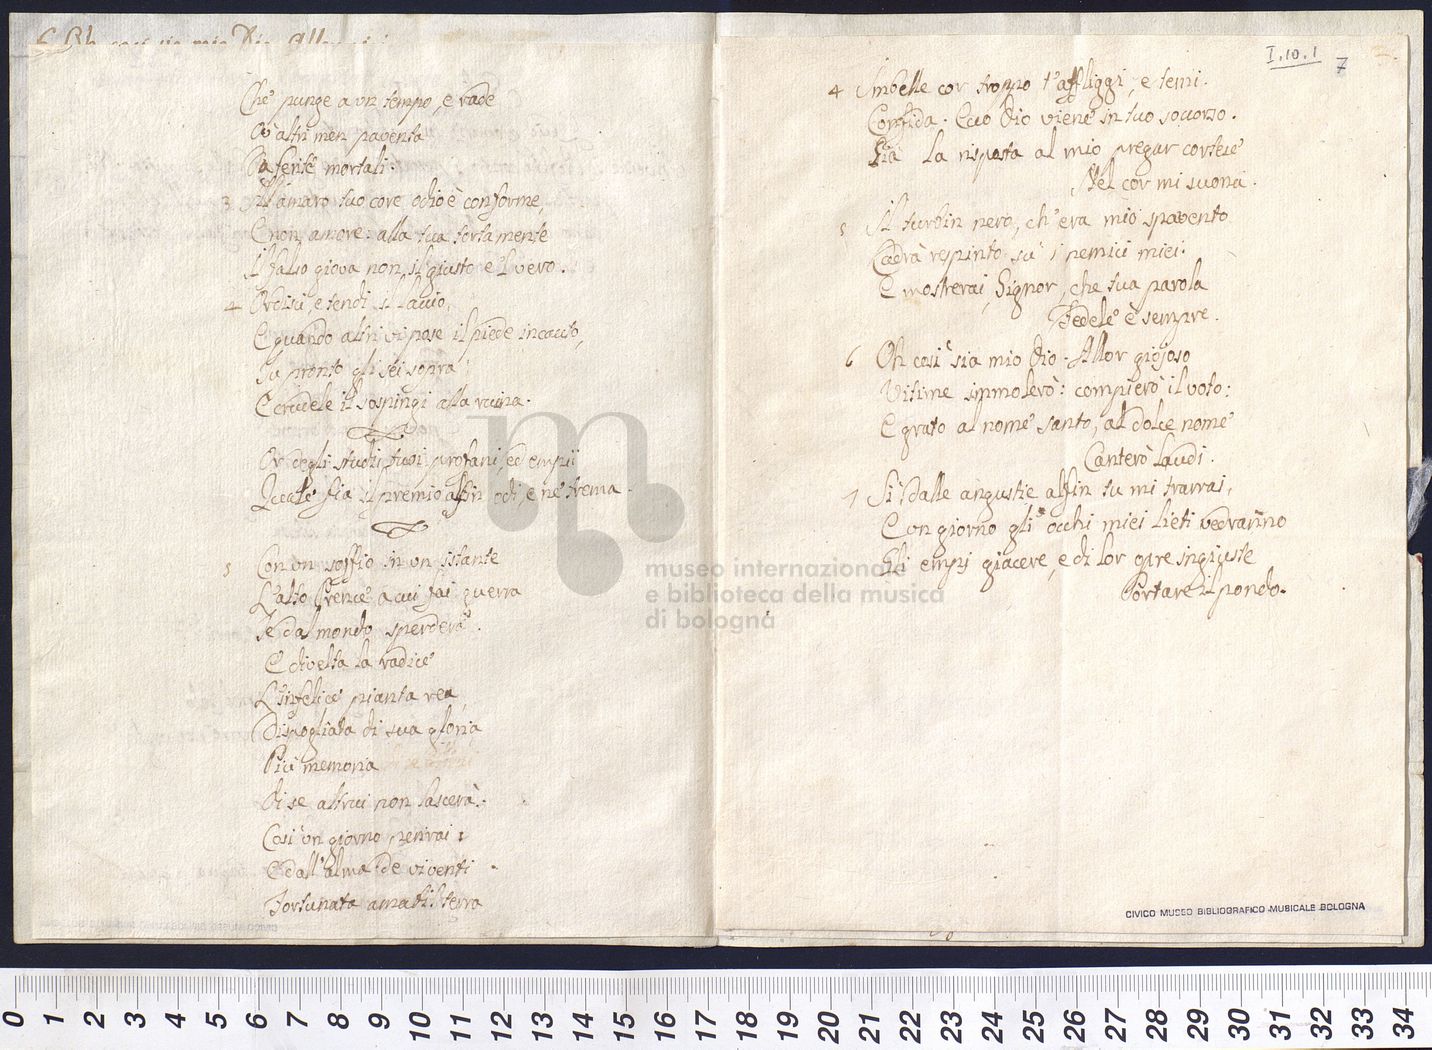 6 Oh così sia mio Dio. Allor
Che punge a un tempo, e rade
Ov' altri men paventa
Fa ferite mortali.
3 All' amaro tuo core odio è conforme,
E non amore alla tua torta mente
Il falso giova non il giusto e 'l vero.
4 Ordisci, e tendi il laccio,
E quando altri vi pose il piede incauto,
Tu pronto gli sei sopra
E crudele il sospingi alla ruina.
Or degli studi tuoi profani, ed empii
Quale fia il premio alfin odi, e ne trema.
5 Con un soffio in un istante
L'alto Prence a cui fai guerra
Te dal mondo sperderà.
E divelta la radice
L'infelice pianta rea
Dispogliata di sua gloria
Più memoria
Di se altrui non lascerà.
Così un giorno perirai
E dall'alma de viventi
Fortunata amabil terra
I.10.1
7
4 Imbelle cor troppo t'affliggi, e temi.
Confida. Ecco Dio viene in tuo soccorso.
Già la risposta al mio pregar cortese
Nel cor mi suona.
5 Il turbin nero, ch'era mio spavento
Cadrà respinto su i nemici miei.
E mostrerai, Signor, che tua parola
Fedele è sempre.
6 Oh così sia mio Dio. Allor giojoso
Vitime immolerò: compierò il voto:
E grato al nome santo, al dolce nome
Canterò laudi.
7 Sì dalle angustie alfin tu mi trarrai,
E un giorno gli occhi miei lieti vedranno
Gli empj giacere, e di lor opre ingiuste
Portare il pondo.
museo internazionale
e biblioteca della musica
di bologna
CIVICO MUSEO BIBLIOGRAFICO MUSICALE BOLOGNA
0 1 2 3 4 5 6 7 8 9 10 11 12 13 14 15 16 17 18 19 20 21 22 23 24 25 26 27 28 29 30 31 32 33 34